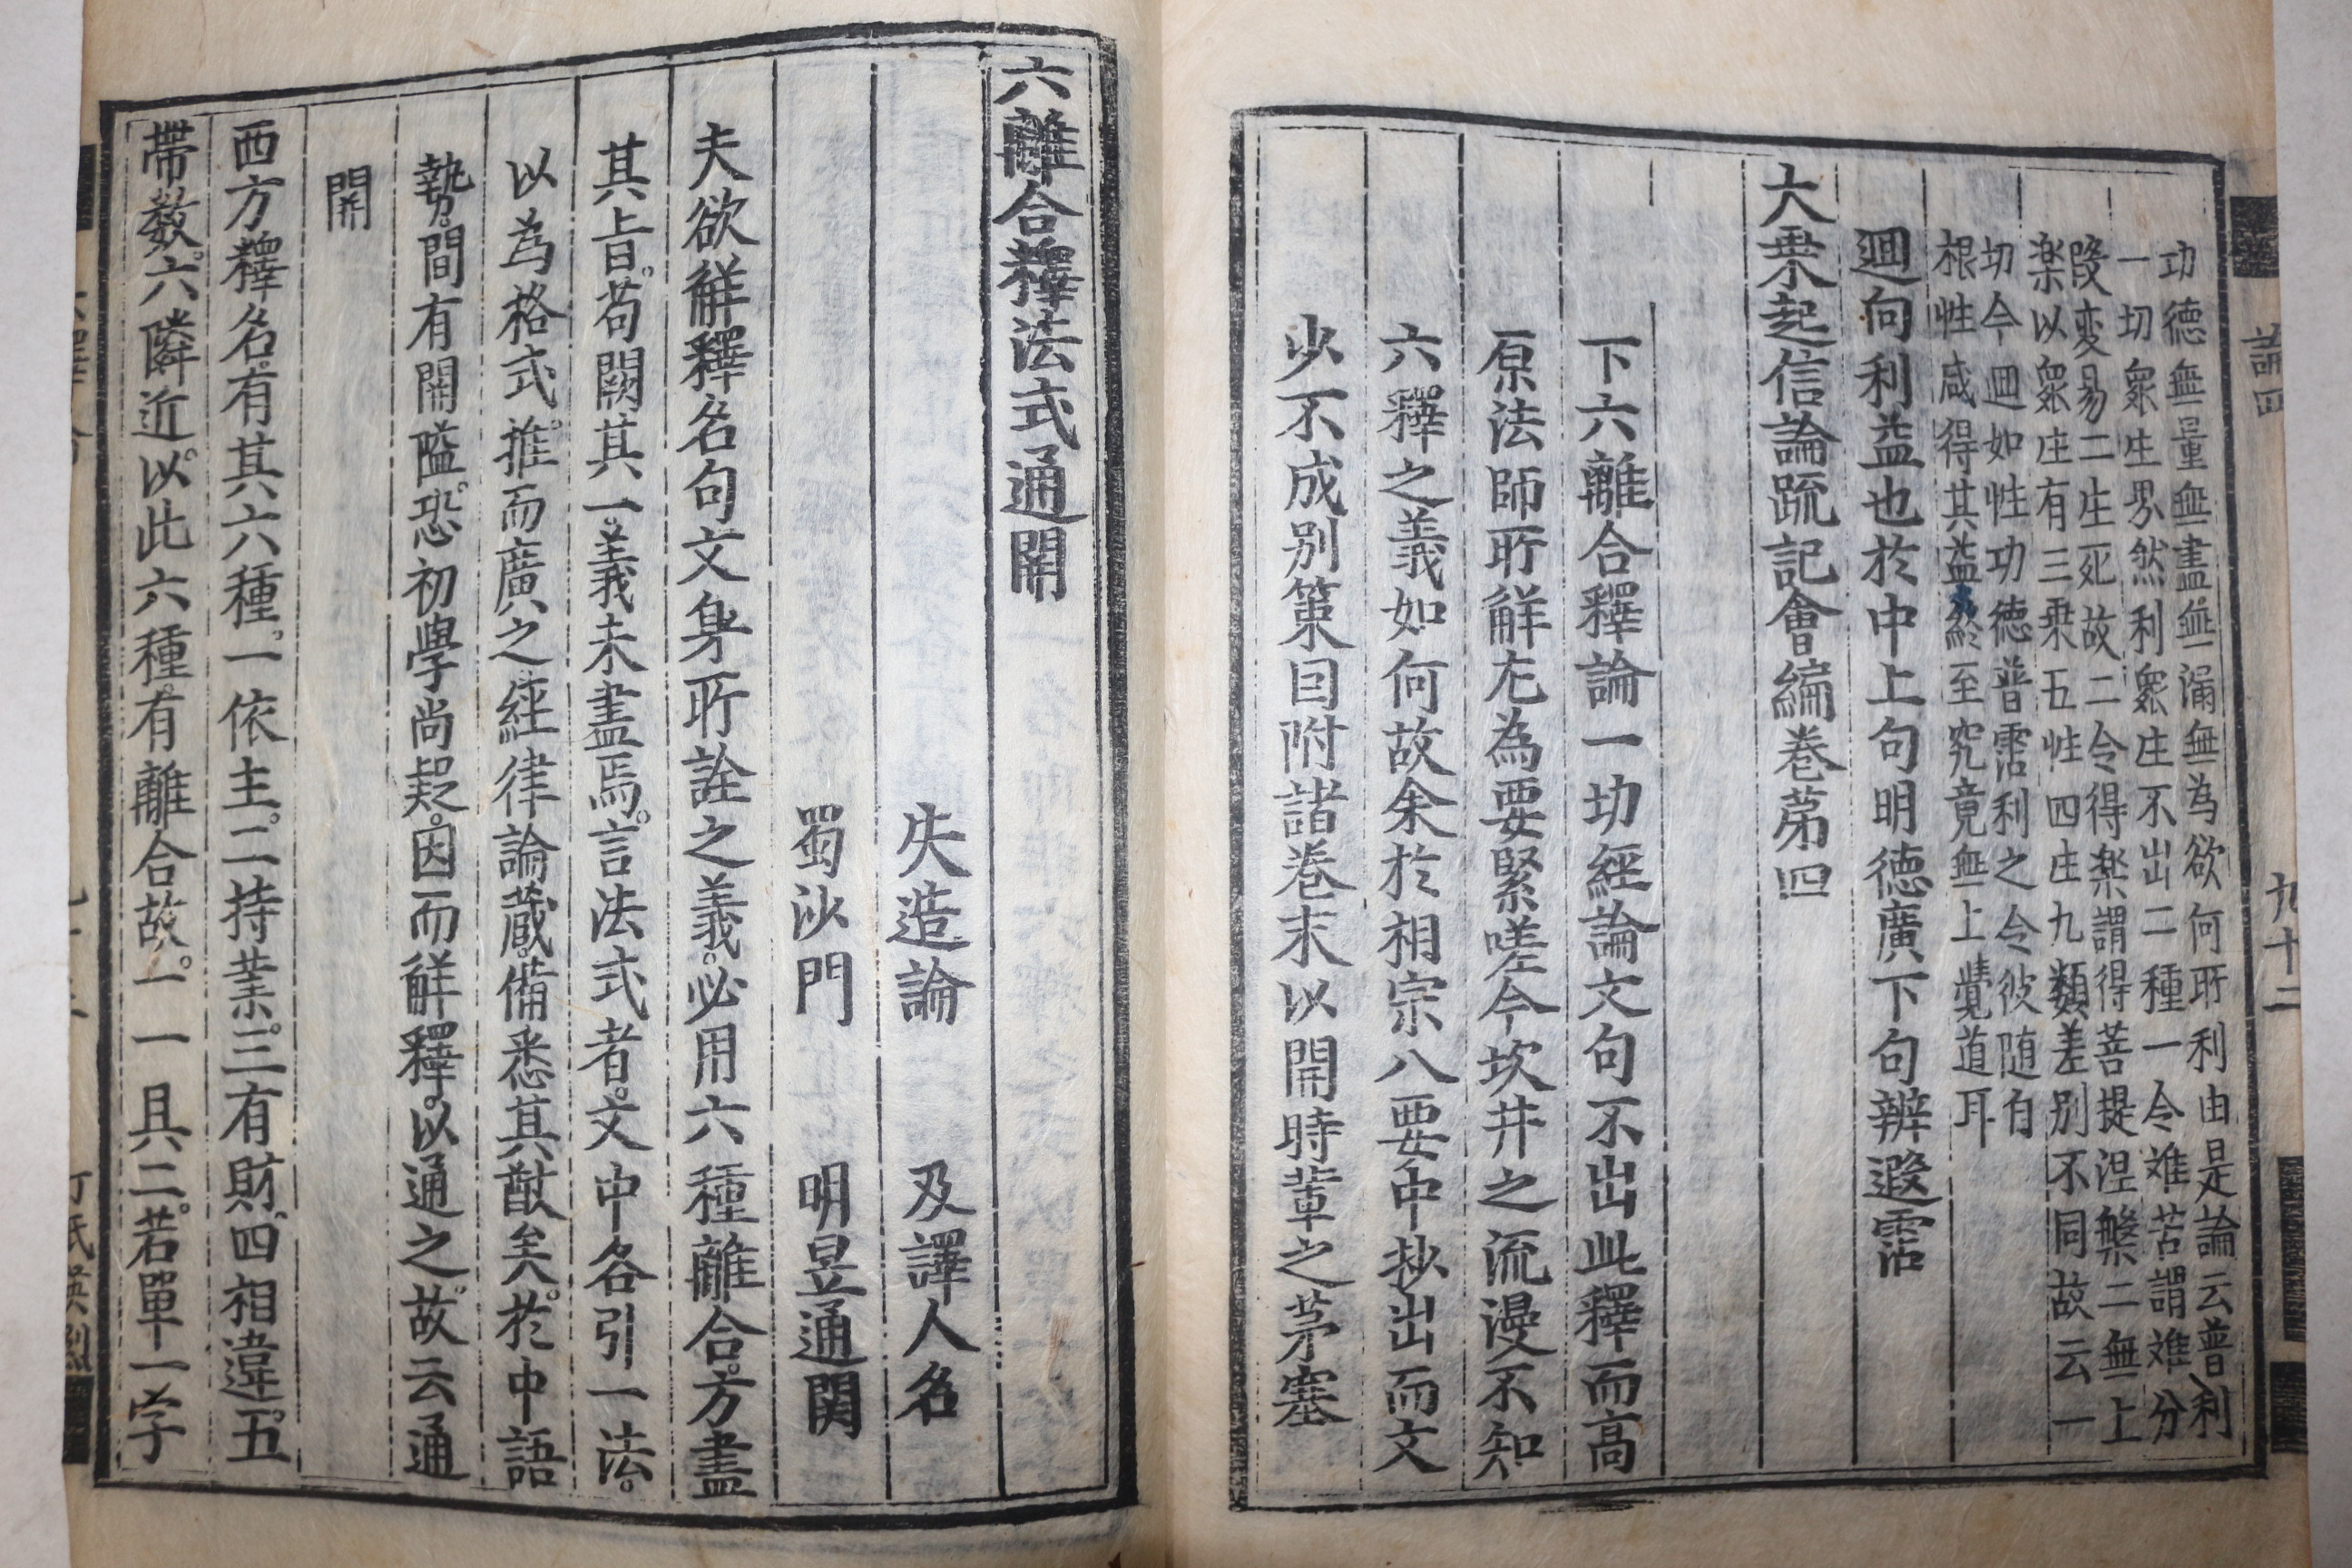 論四
九十二
功德無量無盡無漏無為欲何所利由是論云普利
一切衆生界然利衆生不出二種一令难苦謂难分
段変易二生死故二令得楽謂得菩提涅槃二無上
楽以衆生有三乗五性四生九類差别不同故云一
切今迴如性功德普霑利之令彼随自
根性咸得其益終至究竟無上覺道耳
迴向利益也於中上句明德廣下句辨遐霑
大乗起信論䟽記會編卷苐四
下六離合釋論一切經論文句不出此釋而高
原法師所觧尤為要緊嗟今坎井之流漫不知
六釋之義如何故余於相宗八要中抄出而文
少不成别䇿因附諸卷末以開時輩之茅塞
六離合釋法式通關
失造論　及譯人名
蜀沙門　明昱通関
夫欲觧釋名句文身所詮之義。必用六種離合。方盡
其旨。苟闕其一。義未盡焉。言法式者。文中各引一法。
以為格式。推而廣之。經律論蔵。備悉其猷矣。於中語
勢。間有開隘。恐初學尚疑。因而觧釋。以通之。故云通
関
西方釋名。有其六種。一依主。二持業。三有財。四相違。五
帶数。六隣近。以此六種。有離合故。一一具二。若單一字